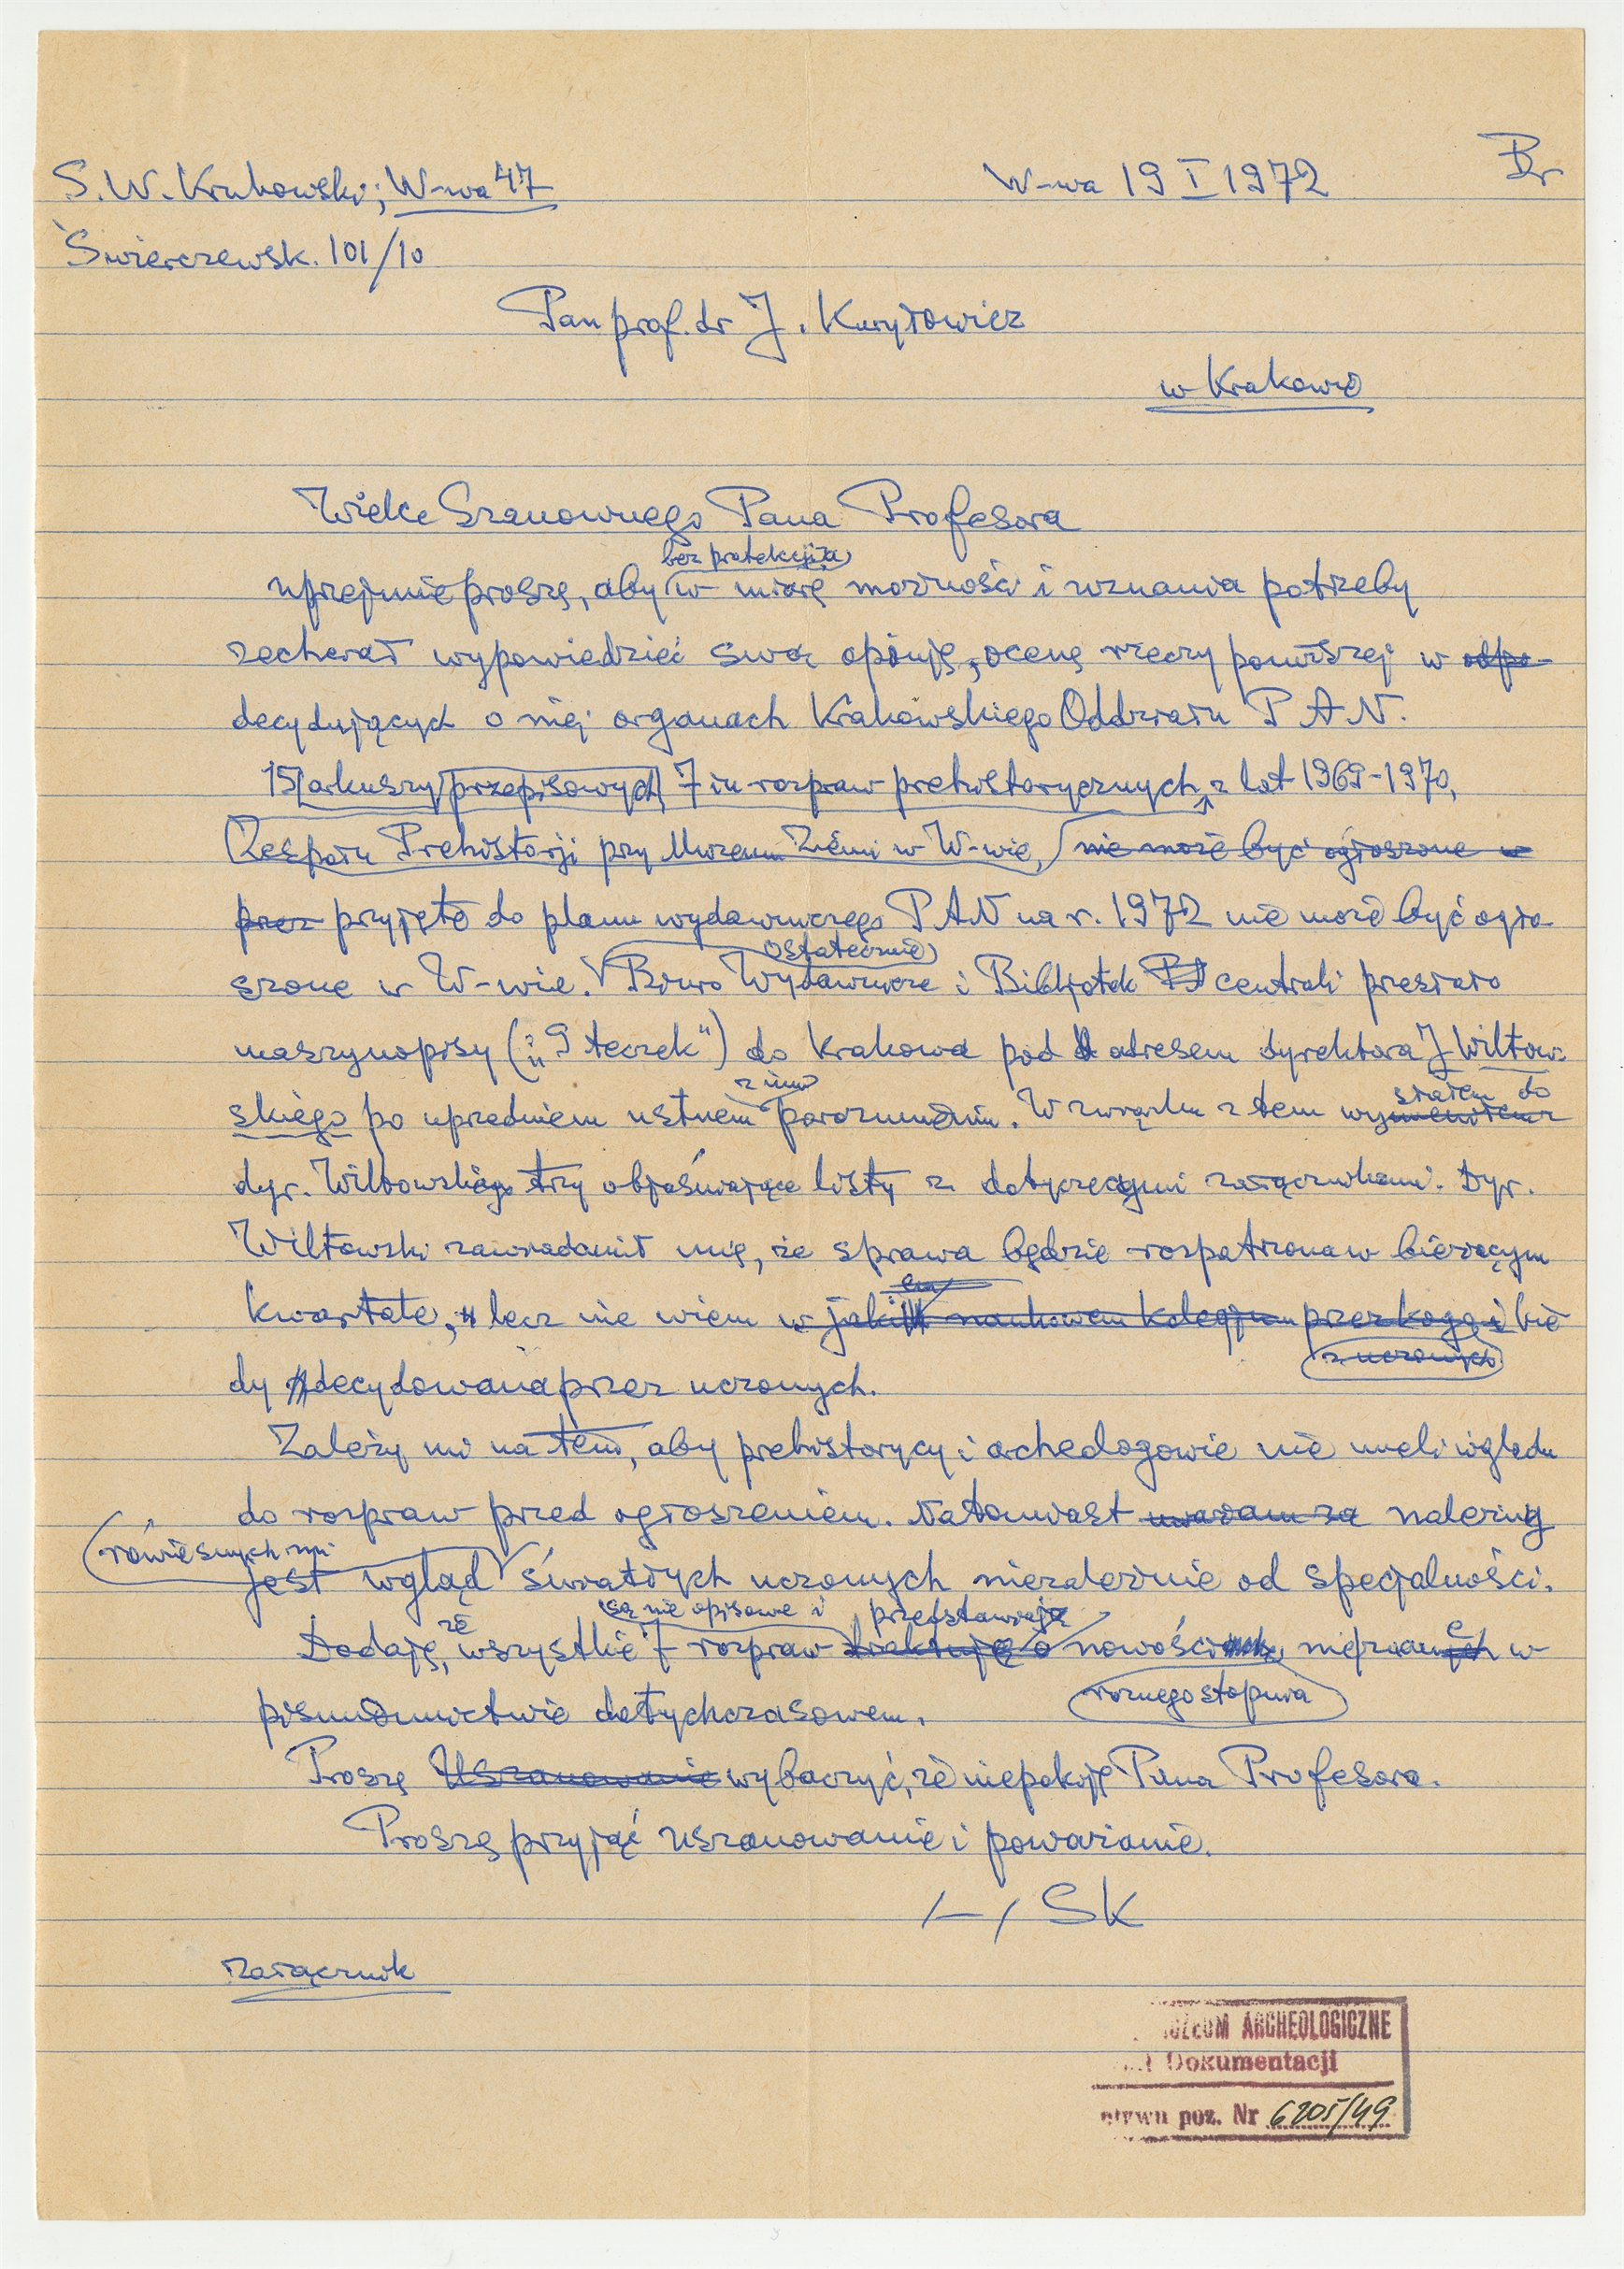 Br
S. W. Krukowski; W-wa 47 W-wa 19 I 1972
Świerczewsk. 101/10
Pan prof. dr J. Kuryłowicz
w Krakowie
Wielce Szanownego Pana Profesora
bez protekcji
uprzejmie proszę, aby w miarę możności i uznania potrzeby
zechciał wypowiedzieć swą opinję, ocenę rzeczy poniższej w odpo-
decydujących o niej organach Krakowskiego Oddziału P A N.
15 arkuszy przepisowych 7iu rozpraw prehistorycznych z lat 1969-1970,
Zespołu Prehistorji przy Muzeum Ziemi w W-wie, nie może być ogłoszone w
przez przyjęte do planu wydawniczego PAN na r. 1972 nie może być ogło-
ostatecznie
szone w W-wie. Biuro Wydawnicze i Bibljotek centrali przesłało
maszynopisy („9 teczek") do Krakowa pod adresem dyrektora J Wiltow-
z nim
skiego po uprzedniem ustnem porozumieniu. W związku z tem wysłałem do
dyr. Wiltowskiego trzy objaśniające listy z dotyczącymi załącznikami. Dyr.
Wiltowski zawiadomił mię, że sprawa będzie rozpatrzona w bieżącym
em
kwartale, lecz nie wiem w jakim naukowem kolegjum przez kogo i bę-
z uczonych
dzie decydowana przez uczonych.
Zależy mi na tem, aby prehistorycy i archeologowie nie mieli wglądu
do rozpraw przed ogłoszeniem. Natomiast uważam za należny
rówieśnych mi
jest wgląd światłych uczonych niezależnie od specjalności.
są nie opisowe i przedstawiają
Dodaję, że wszystkie 7 rozpraw traktują o nowości nieznane w
różnego stopnia
piśmiennictwie dotychczasowem.
Proszę Uszanowanie wybaczyć, że niepokoję Pana Profesora.
Proszę przyjąć uszanowanie i poważanie.
/-/ SK
Załącznik
MUZEUM ARCHEOLOGICZNE
Dokumentacji
poz. Nr 6205/49